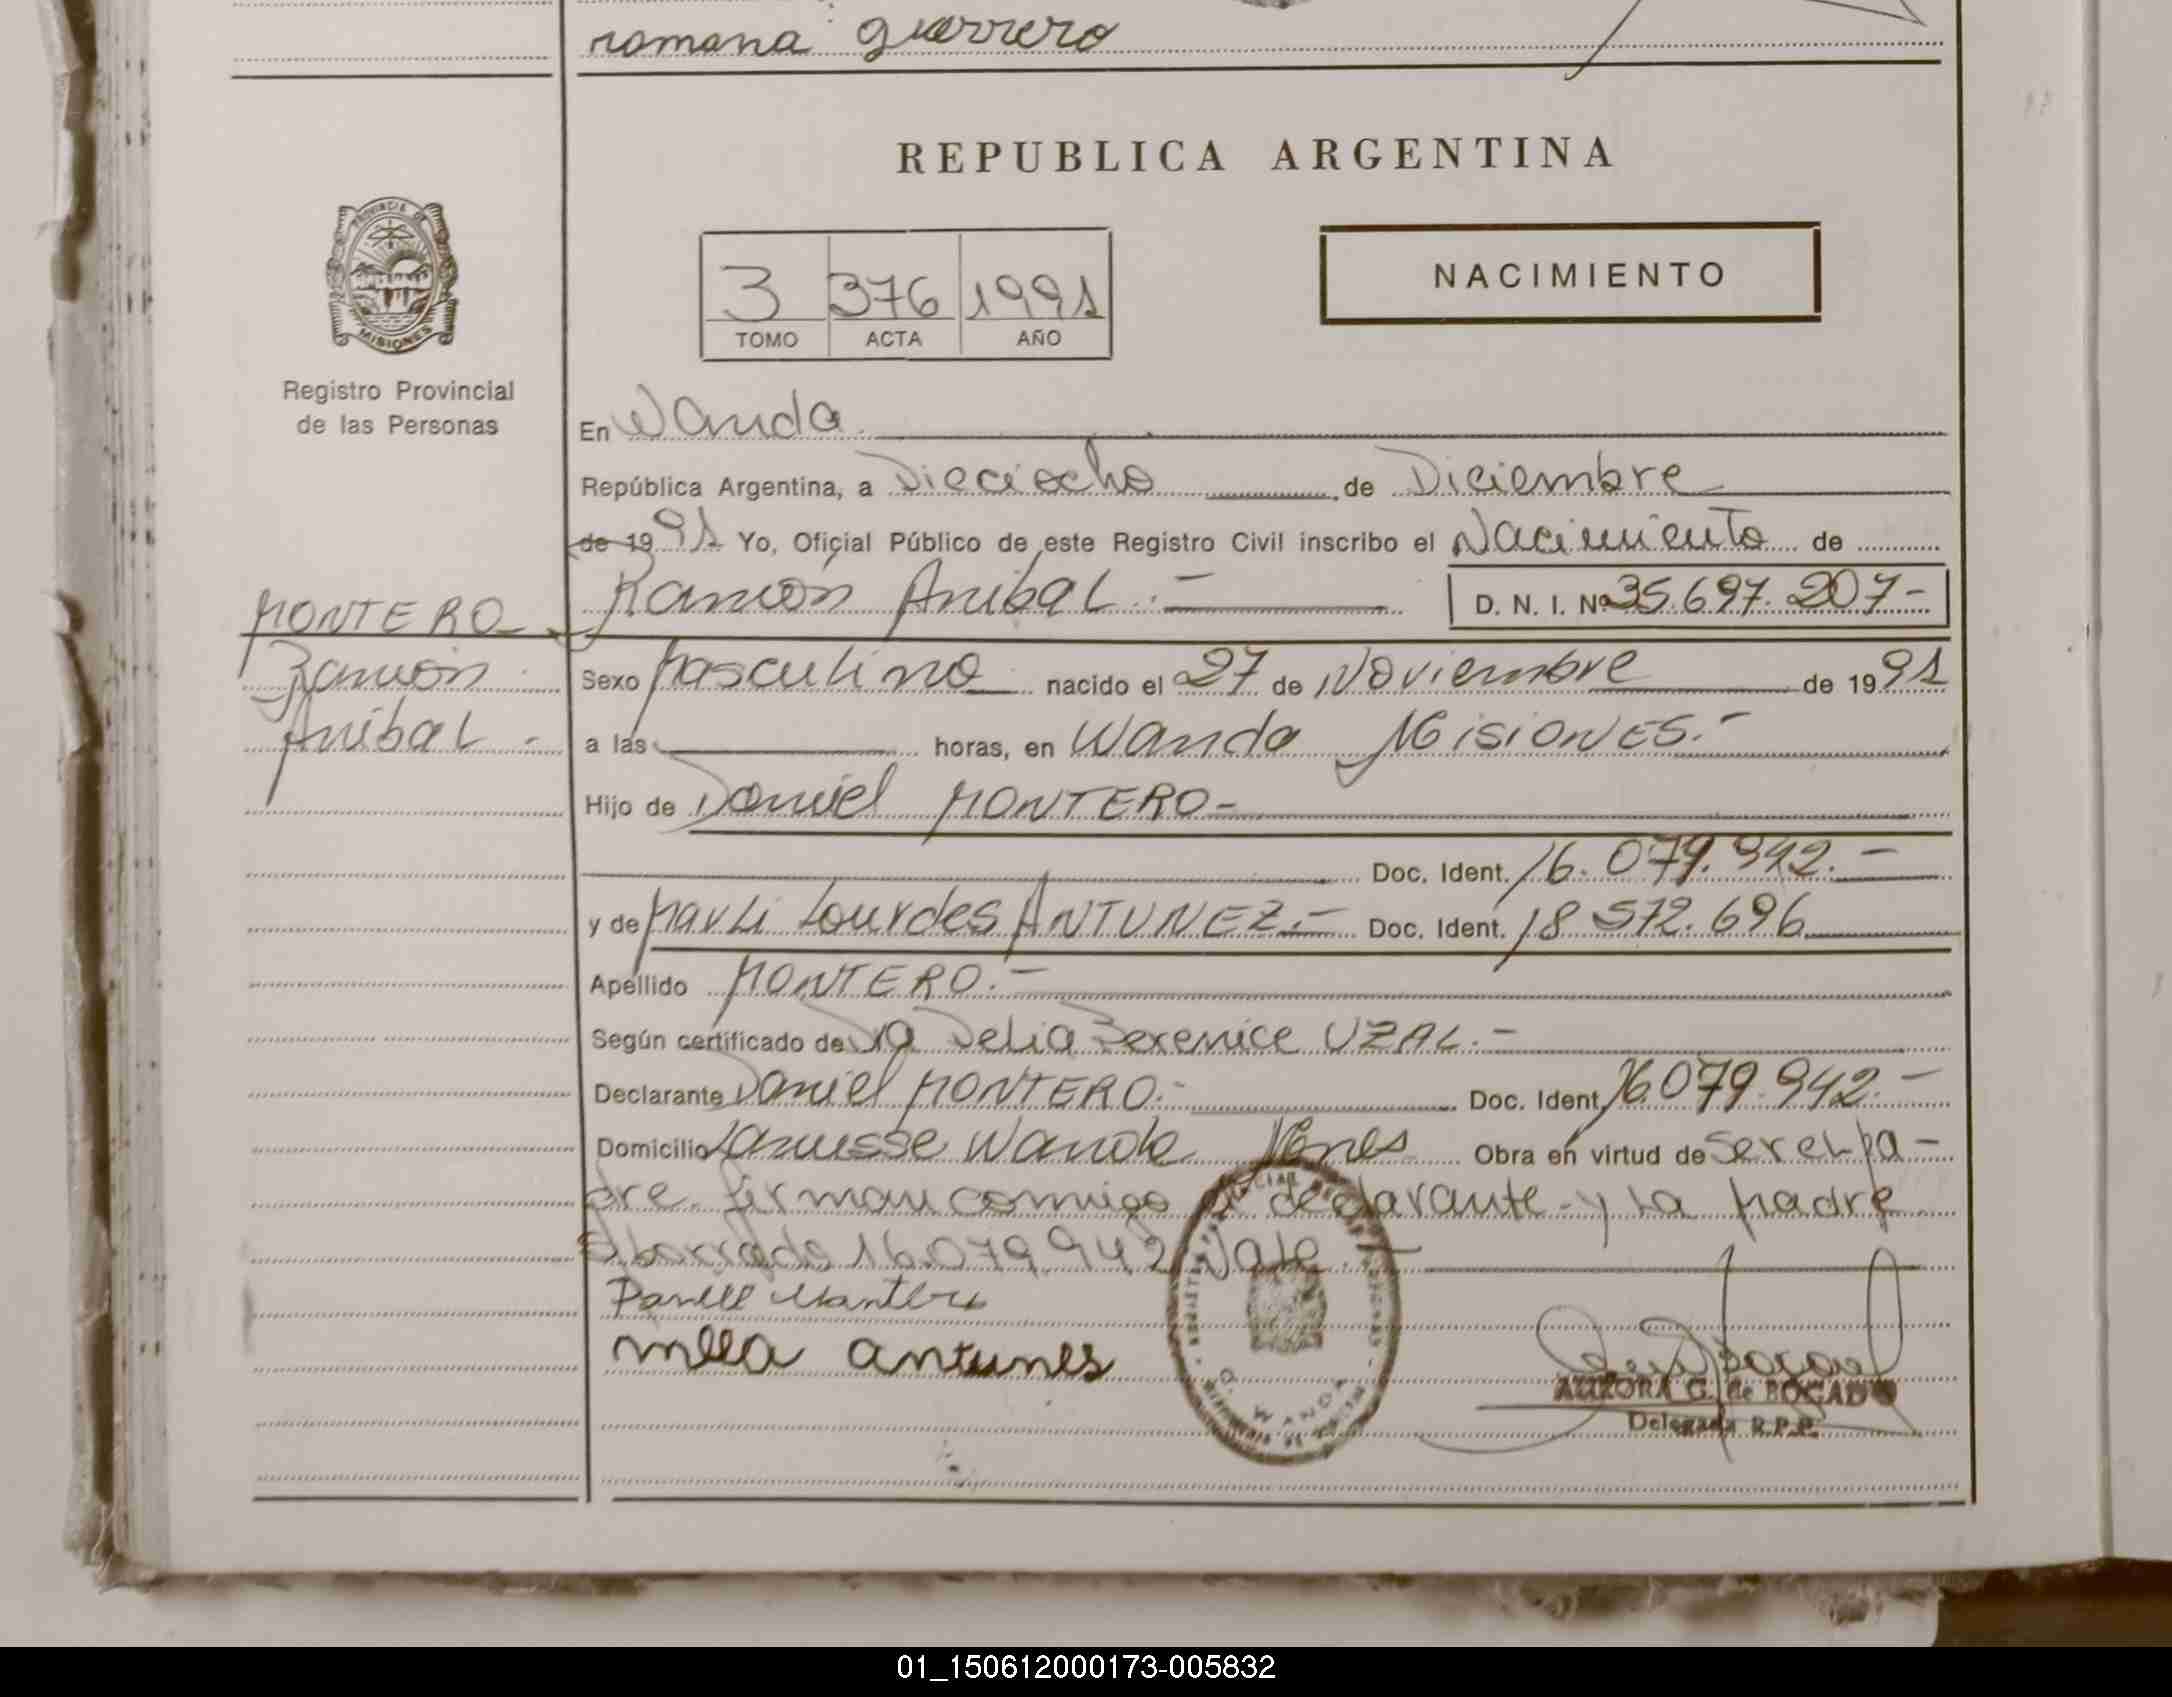 romana guerrero
REPUBLICA ARGENTINA
PROVINCIA DE
MISIONES
Registro Provincial
de las Personas
3 376 1991
TOMO ACTA AÑO
NACIMIENTO
En Wanda
República Argentina, a Dieciocho de Diciembre
de 1991 Yo, Oficial Público de este Registro Civil inscribo el Nacimiento de
MONTERO Ramón Anibal.- D. N. I. Nº 35.697.207-
Ramón
Anibal.-
Sexo Masculino nacido el 27 de Noviembre de 1991
a las horas, en Wanda Misiones.-
Hijo de Daniel MONTERO-
Doc. Ident. 16.079.942.-
y de Marli Lourdes ANTUNEZ.- Doc. Ident. 18 572.696
Apellido MONTERO.-
Según certificado de Dra Delia Berenice UZAL.-
Declarante Daniel MONTERO.- Doc. Ident. 16.079.942.-
Domicilio Lanusse Wanda Mnes Obra en virtud de ser el pa-
dre. firman conmigo el declarante y la madre
16.079.942 Vale.-
antunes
WANDA
AURORA G. de BOGADO
Delegada R.P.P.
01_150612000173-005832